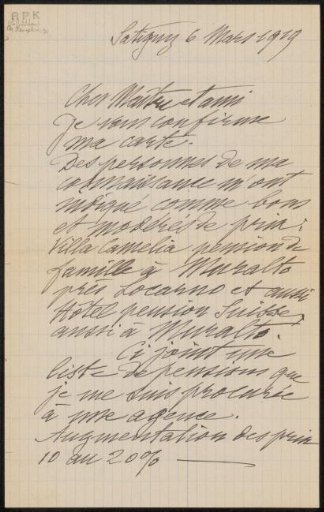 RPK
Satigny 6 Mars 1919
Cher Maître et ami
Je vous confirme
ma carte.
Des personnes de ma
connaissance m'ont
indiqué comme bons
et modérés de prix :
Villa Camelia pension de
famille à Muralto
près Locarno et aussi
Hôtel pension Suisse,
aussi à Muralto.
Ci joint une
liste de pensions que
je me suis procurée
à une agence.
Augmentation des prix
10 au 20%